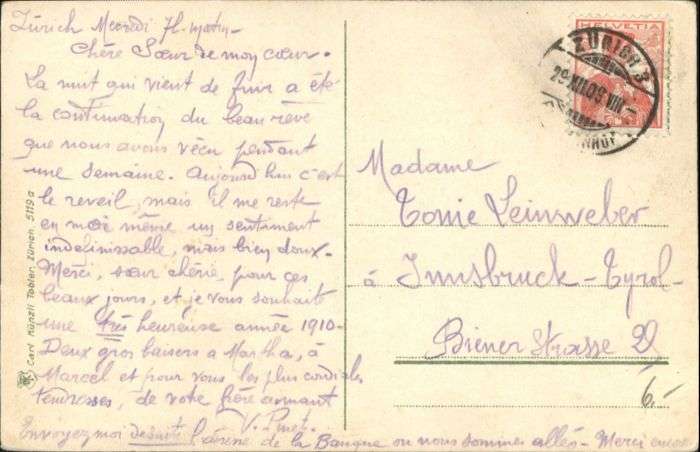 Zürich Mecredi 7h. matin-
Chère Sœur de mon cœur.
La nuit qui vient de finir a été
la continuation du beau rêve
que nous avons vécu pendant
une semaine. Aujourd'hui c'est
le reveil, mais il me reste
en moi même un sentiment
indefinissable, mais bien doux.
Merci, sœur chérie, pour ces
beaux jours, et je vous souhait
une très heureuse année 1910-
Deux gros baisers a Martha, à
Marcel et pour vous les plus cordiales
tendresses, de votre frère aimant
V.
Envoyez moi de suite l'adresse de la Banque ou nous sommes allés - Merci encore
HELVETIA
ZÜRICH 3
29.XII.09.VIII-
BAHNHOF
Madame
Tonie Leinweber
à Innsbruck-Tyrol-
Biener Strasse 29
6.-
Carl Künzli Tobler, Zürich. 5119 a